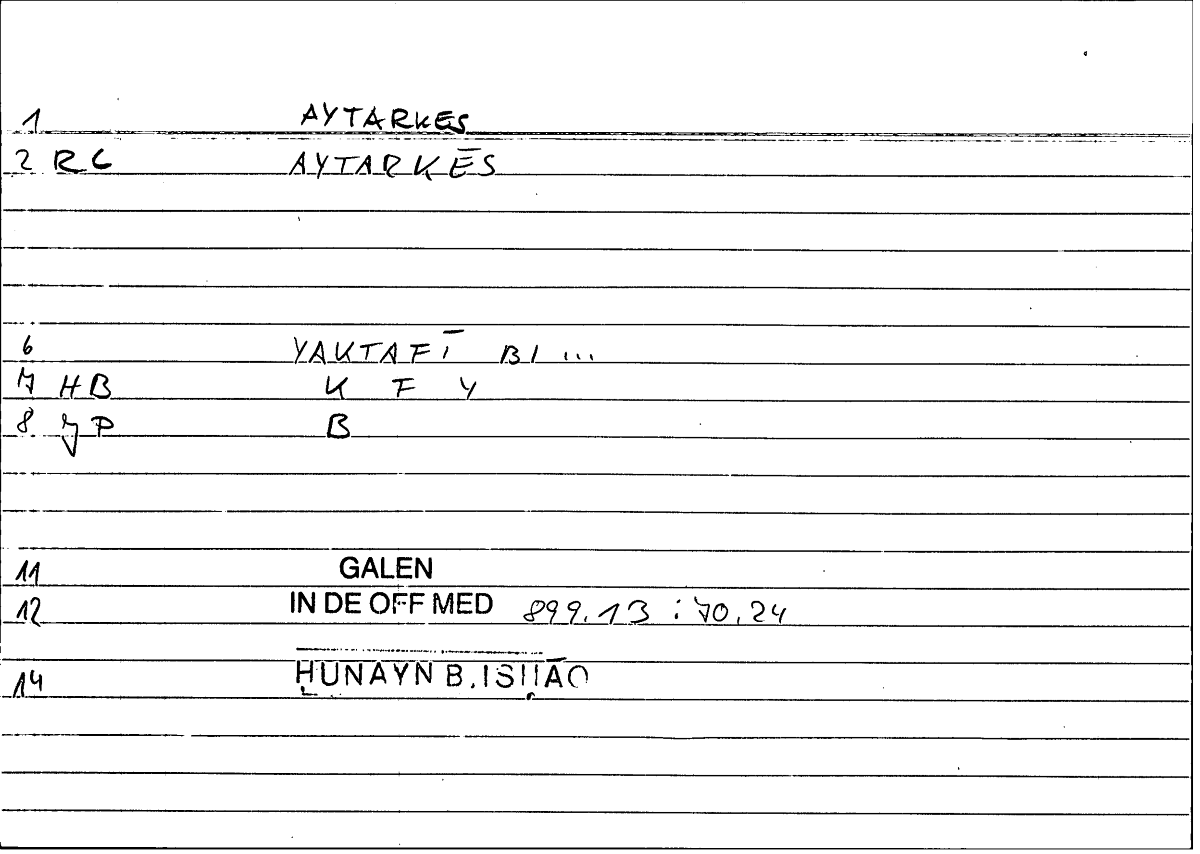 1 AYTARKES
2 RC AYTARKĒS
6 YAKTAFĪ BI ...
7 HB K F Y
8 JP B
11 GALEN
12 IN DE OFF MED 899.13 : 70.24
14 ḤUNAYN B. ISḤĀQ